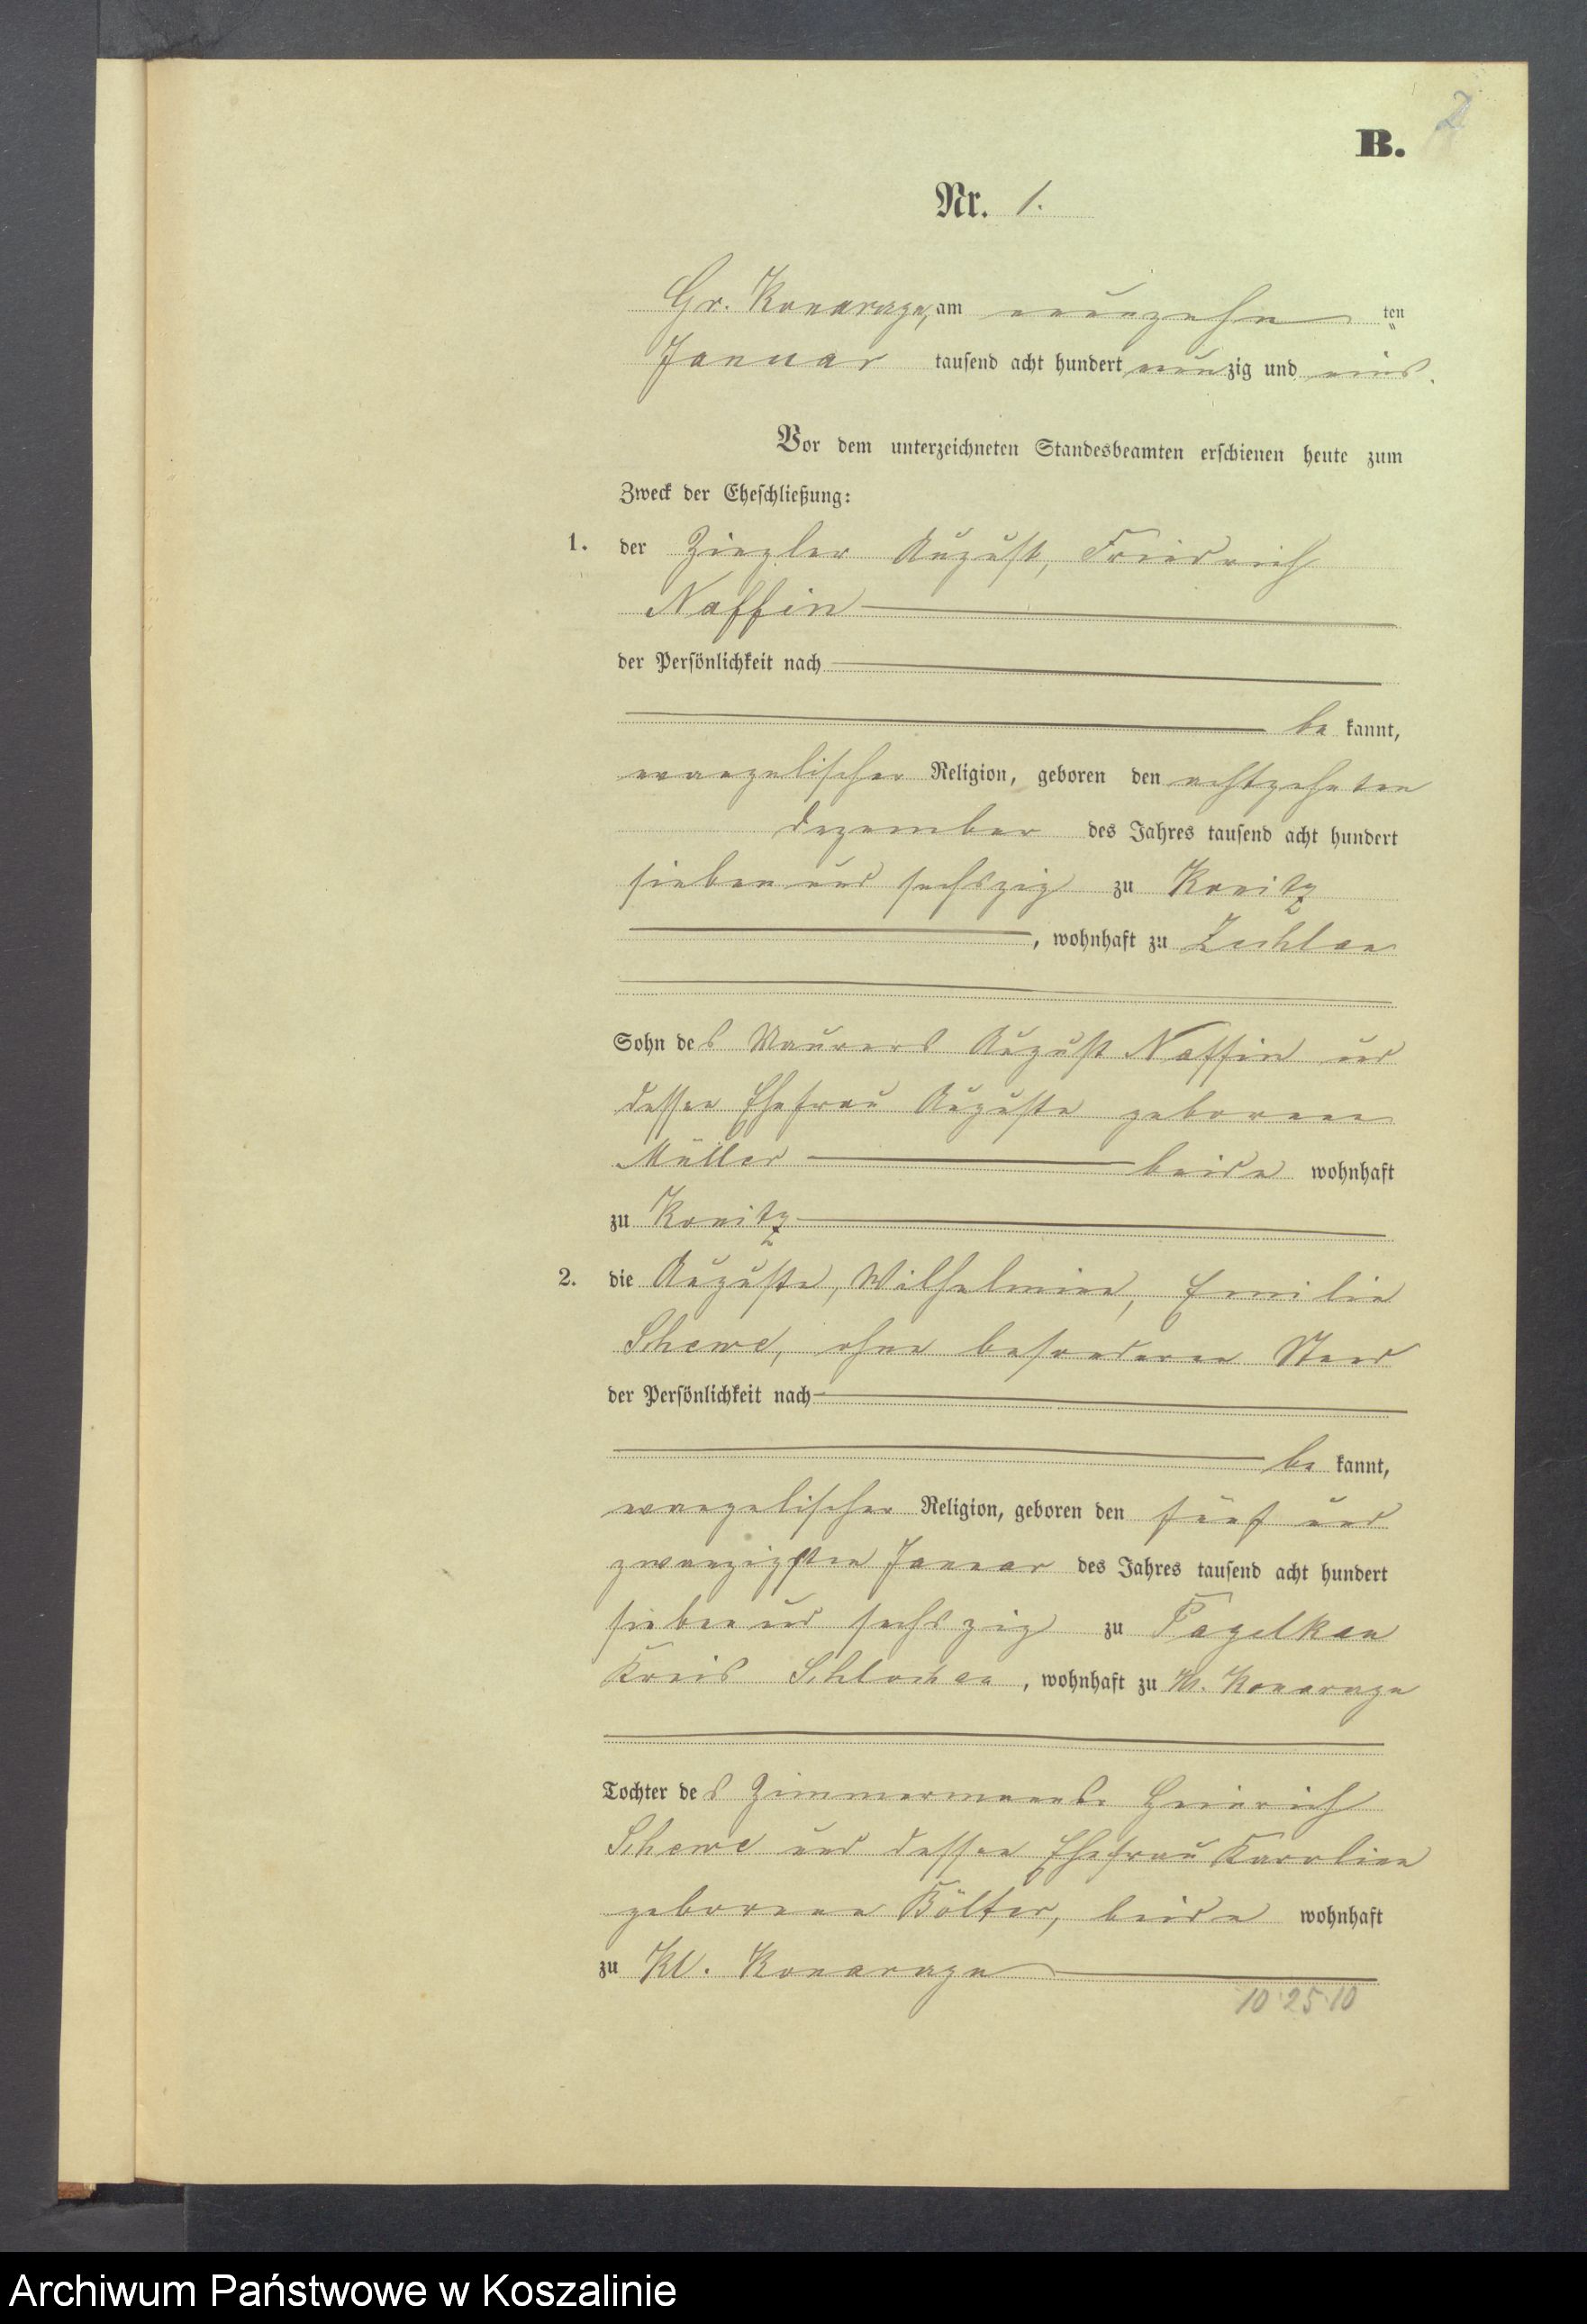 2
B.
Nr. 1.
Gr. Konarczyn, am neunzehn ten
Januar tausend acht hundert neunzig und eins.
Vor dem unterzeichneten Standesbeamten erschienen heute zum
Zweck der Eheschließung:
1. der Ziegler August, Friedrich
Naffin
der Persönlichkeit nach
be kannt,
evangelischer Religion, geboren den achtzehnten
Dezember des Jahres tausend acht hundert
sieben und sechszig zu Konitz
, wohnhaft zu Zechlau
Sohn des Maurers August Naffin und
dessen Ehefrau Auguste geborene
Müller beide wohnhaft
zu Konitz
2. die Auguste, Wilhelmine, Emilie
Schewe, ohne besonderen Stand
der Persönlichkeit nach
be kannt,
evangelischer Religion, geboren den fünf und
zwanzigsten Januar des Jahres tausend acht hundert
sieben und sechszig zu
Kreis Schlochau, wohnhaft zu Kl. Konarczyn
Tochter des Zimmermanns Heinrich
Schewe und dessen Ehefrau Karoline
geborene Bölter, beide wohnhaft
zu Kl. Konarczyn
10 25 10
Archiwum Państwowe w Koszalinie